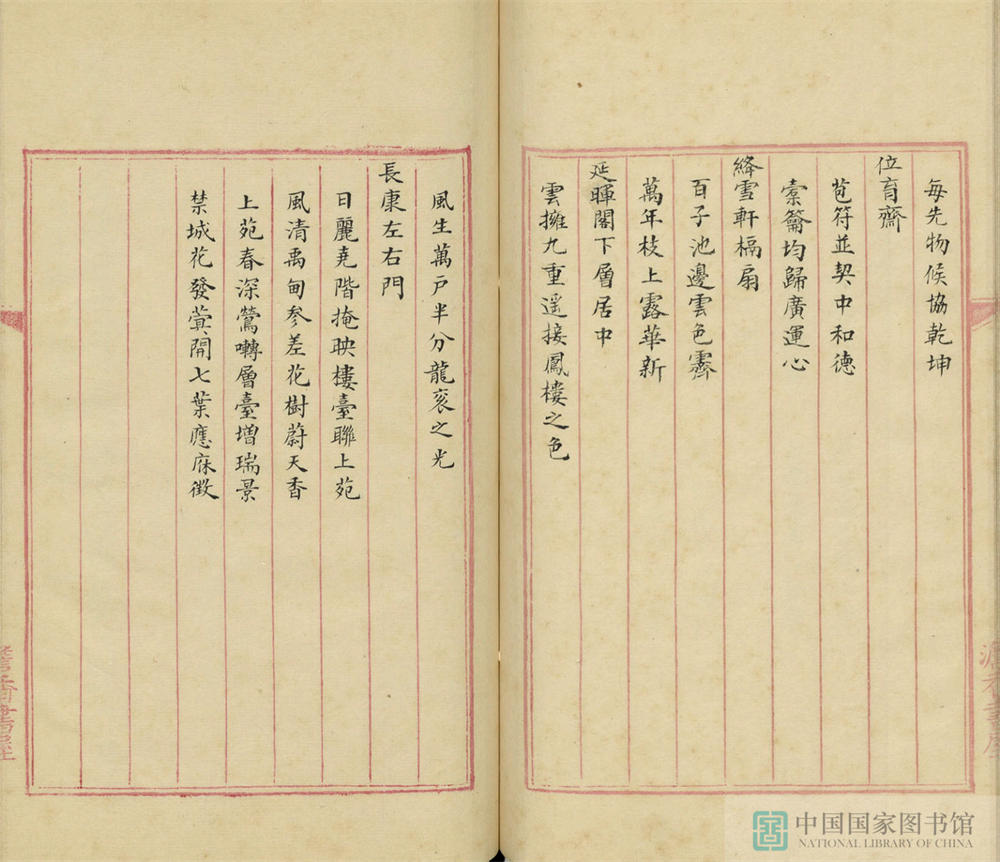 每先物候協乾坤
位育齋
苞符並契中和德
橐籥均歸廣運心
絳雪軒槅扇
百子池邊雲色霽
萬年枝上露華新
延暉閣下層居中
雲擁九重遥接鳳樓之色
風生萬戶半分龍衮之光
長康左右門
日麗堯階掩映樓臺聯上苑
風清禹甸參差花樹蔚天香
上苑春深鶯囀層臺增瑞景
禁城花發蓂開七葉應庥徵
澹香書屋
中国国家图书馆
NATIONAL LIBRARY OF CHINA